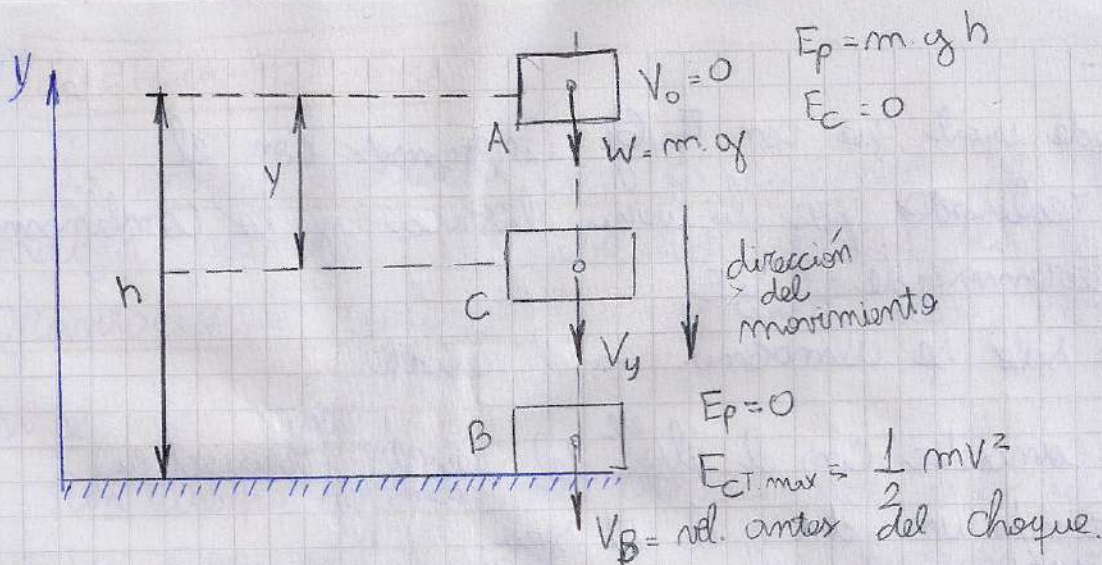 y
h
y
A
V₀ = 0
W = m.g
Ep = m.g h
E_C = 0
C
V_y
dirección
del
movimiento
B
Ep = 0
E_CT.max = 1/2 mV²
V_B = vel. antes del choque.